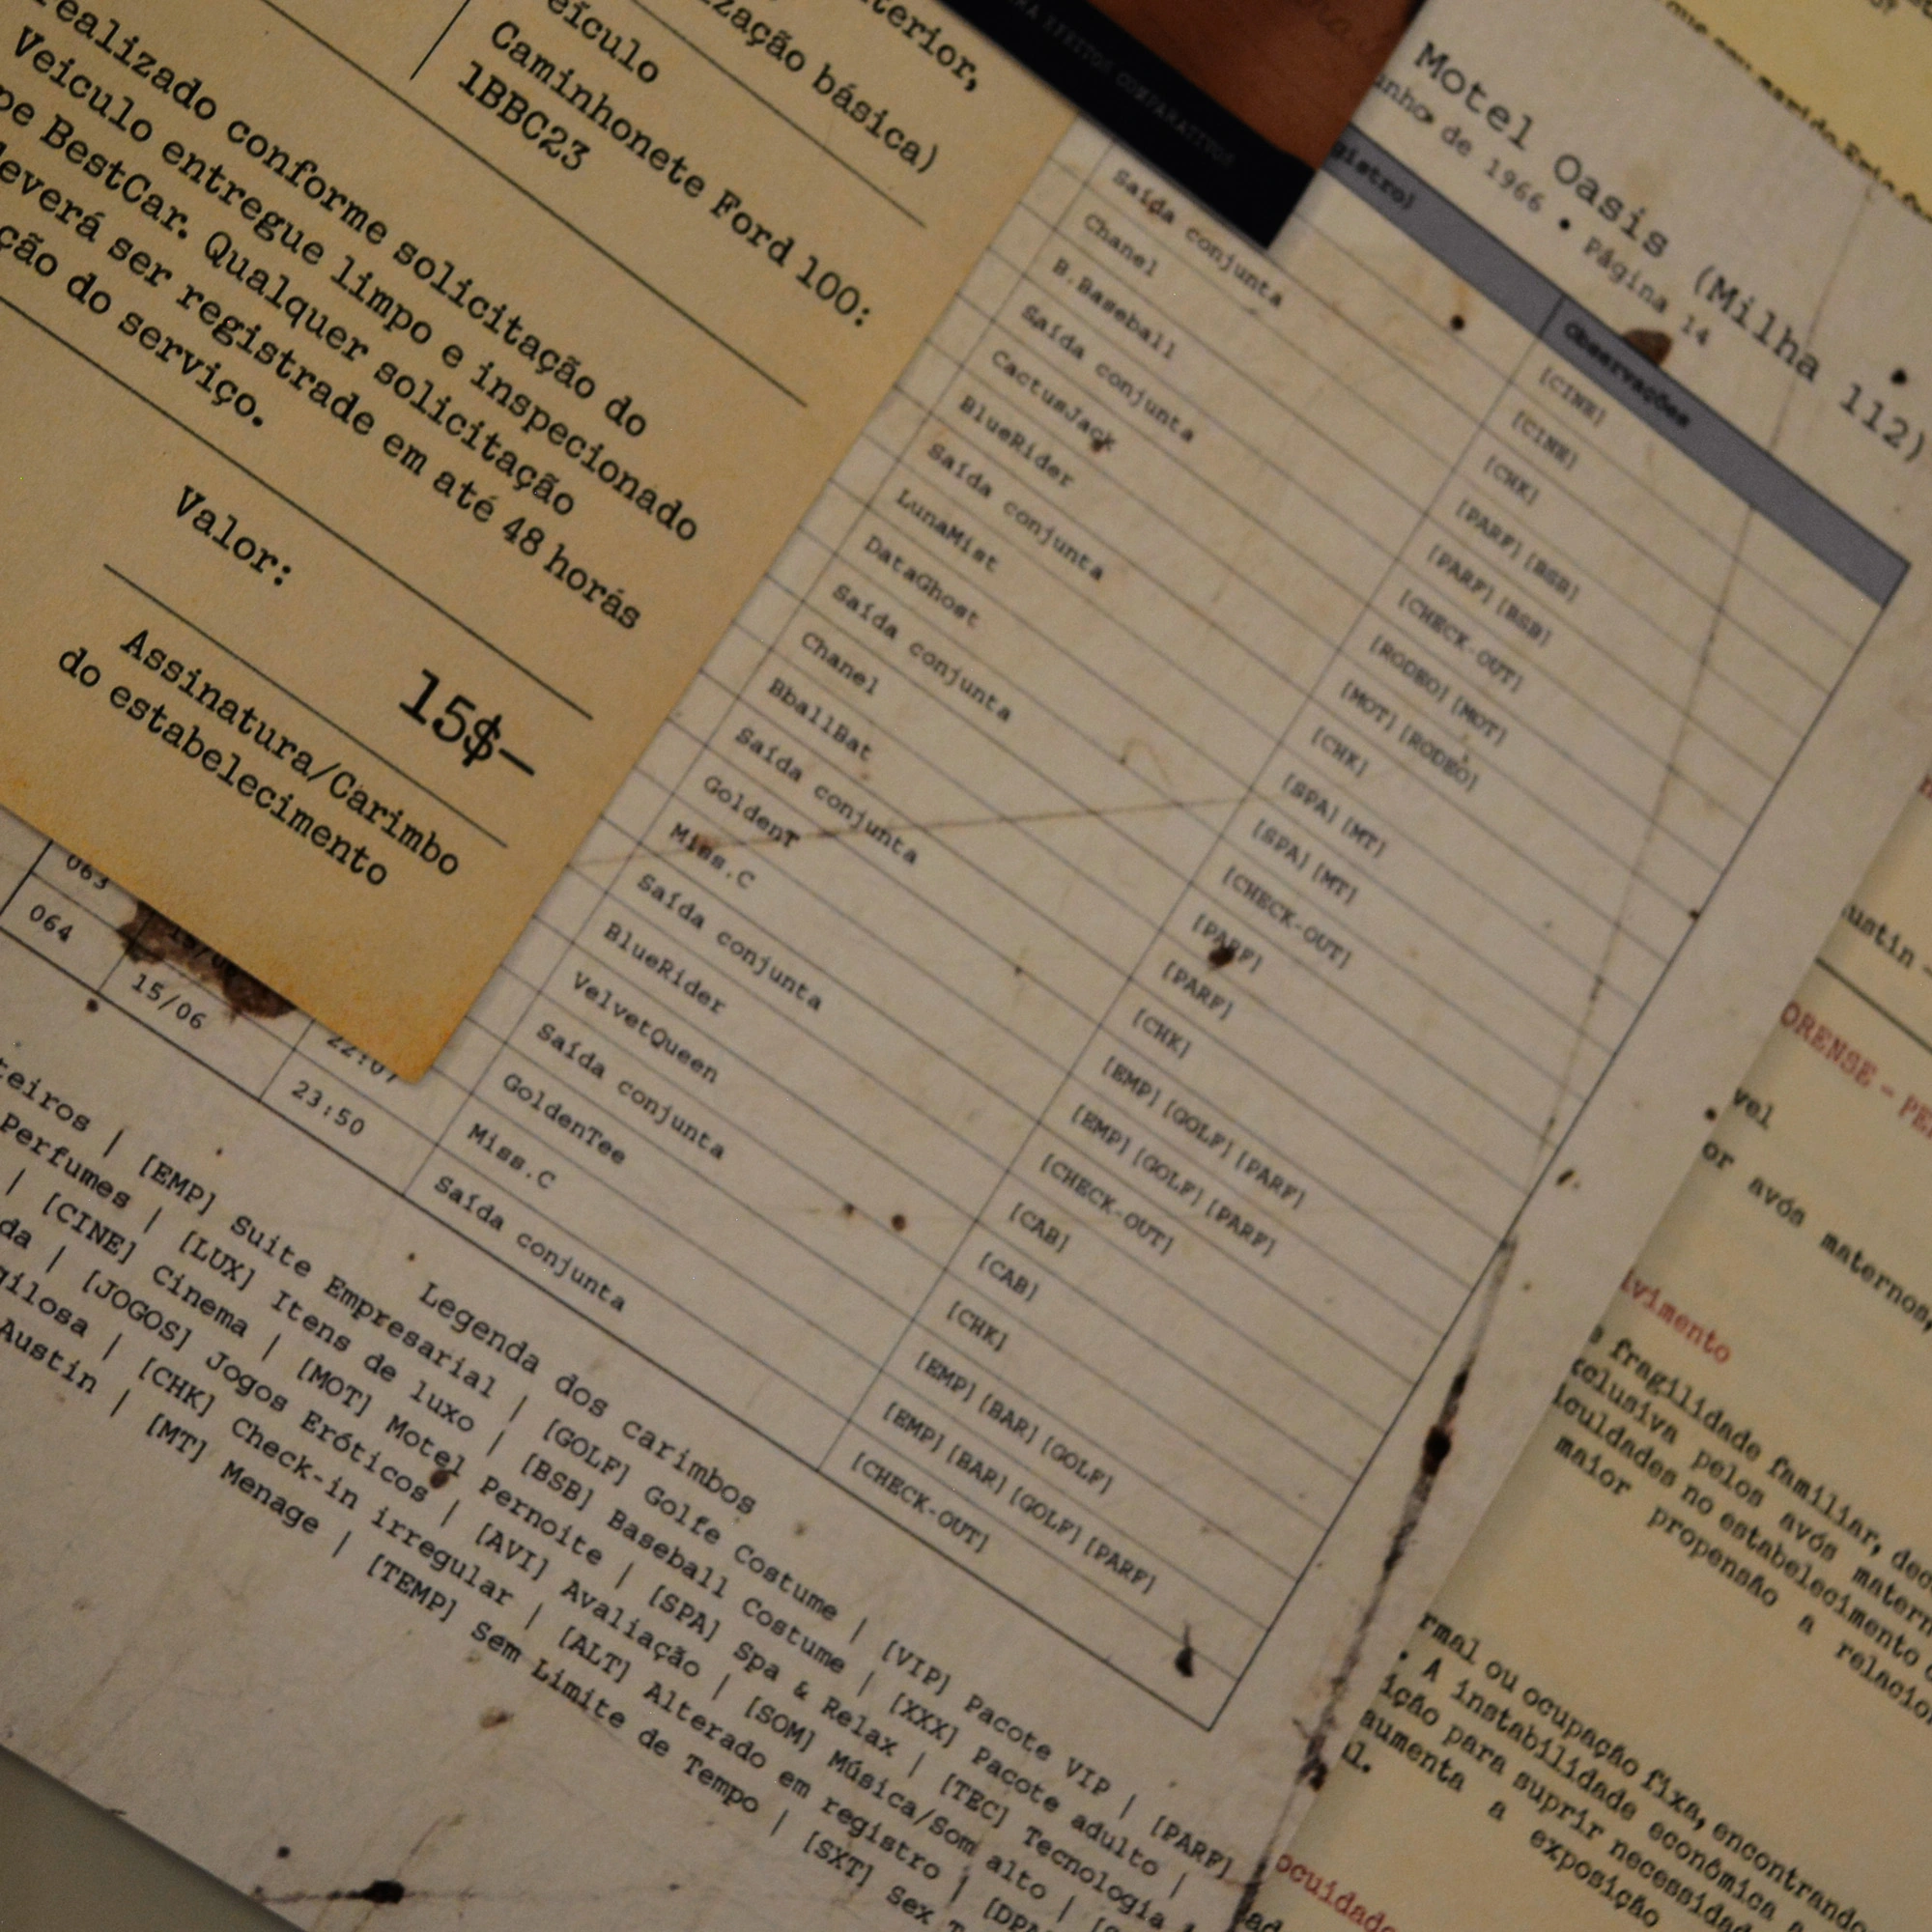 terior,
zação básica)
eículo
Caminhonete Ford 100:
1BBC23
ealizado conforme solicitação do
Veículo entregue limpo e inspecionado
pe BestCar. Qualquer solicitação
everá ser registrade em até 48 horás
ção do serviço.
Valor:
15$—
Assinatura/Carimbo
do estabelecimento
EFEITOS COMPARATIVOS
Motel Oasis (Milha 112)
unho de 1966 • Página 14
gistro)
Observações
Saída conjunta
Chanel
B.Baseball
Saída conjunta
CactusJack
BlueRider
Saída conjunta
LunaMist
DataGhost
Saída conjunta
Chanel
BballBat
Saída conjunta
GoldenT
Miss.C
Saída conjunta
BlueRider
VelvetQueen
Saída conjunta
GoldenTee
Miss.C
Saída conjunta
[CINE]
[CINE]
[CHK]
[PARF] [BSB]
[PARF] [BSB]
[CHECK-OUT]
[RODEO] [MOT]
[MOT] [RODEO]
[CHK]
[SPA] [MT]
[SPA] [MT]
[CHECK-OUT]
[PARF]
[PARF]
[CHK]
[EMP] [GOLF] [PARF]
[EMP] [GOLF] [PARF]
[CHECK-OUT]
[CAB]
[CAB]
[CHK]
[EMP] [BAR] [GOLF]
[EMP] [BAR] [GOLF] [PARF]
[CHECK-OUT]
063
22:07
064 15/06 23:50
Legenda dos carimbos
teiros | [EMP] Suite Empresarial | [GOLF] Golfe Costume | [VIP] Pacote VIP | [PARF]
Perfumes | [LUX] Itens de luxo | [BSB] Baseball Costume | [XXX] Pacote adulto |
| [CINE] Cinema | [MOT] Motel Pernoite | [SPA] Spa & Relax | [TEC] Tecnologia
da | [JOGOS] Jogos Eróticos | [AVI] Avaliação | [SOM] Música/Som alto |
gilosa | [CHK] Check-in irregular | [ALT] Alterado em registro |
Austin | [MT] Menage | [TEMP] Sem Limite de Tempo | [SXT] Sex
ustin -
ORENSE - PE
vel
or avós maternos,
lvimento
fragilidade familiar, dec
clusiva pelos avós matern
iculdades no estabelecimento
maior propensão a relacio
rmal ou ocupação fixa, encontrando
. A instabilidade econômica
ição para suprir necessidad
aumenta a exposição
l.
ocuidado